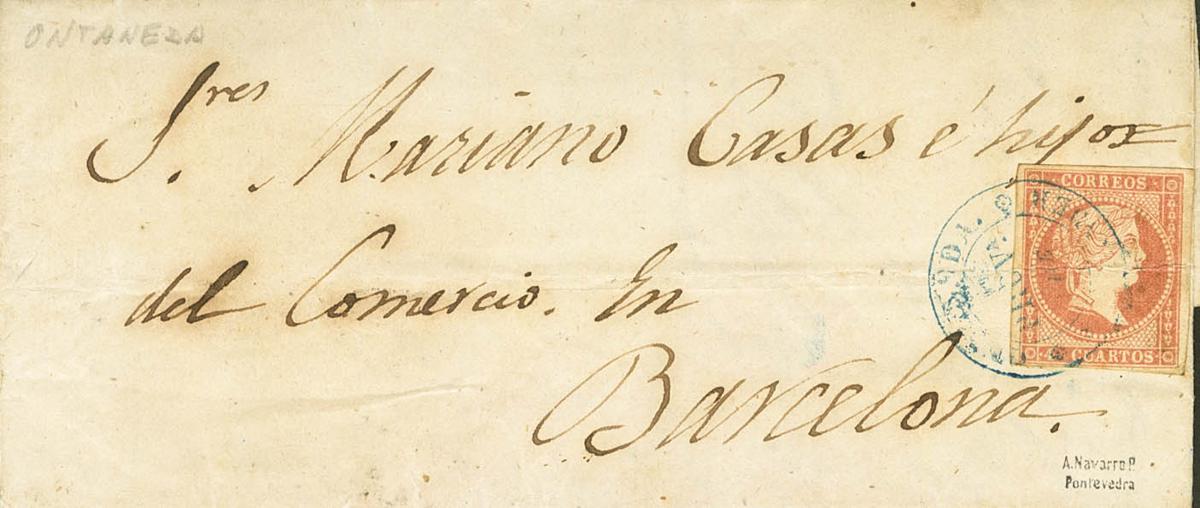 ONTANEDA
Sres. Mariano Casas é hijos
del Comercio. En
Barcelona.
CORREOS
4 CUARTOS
A. Navarro P.
Pontevedra